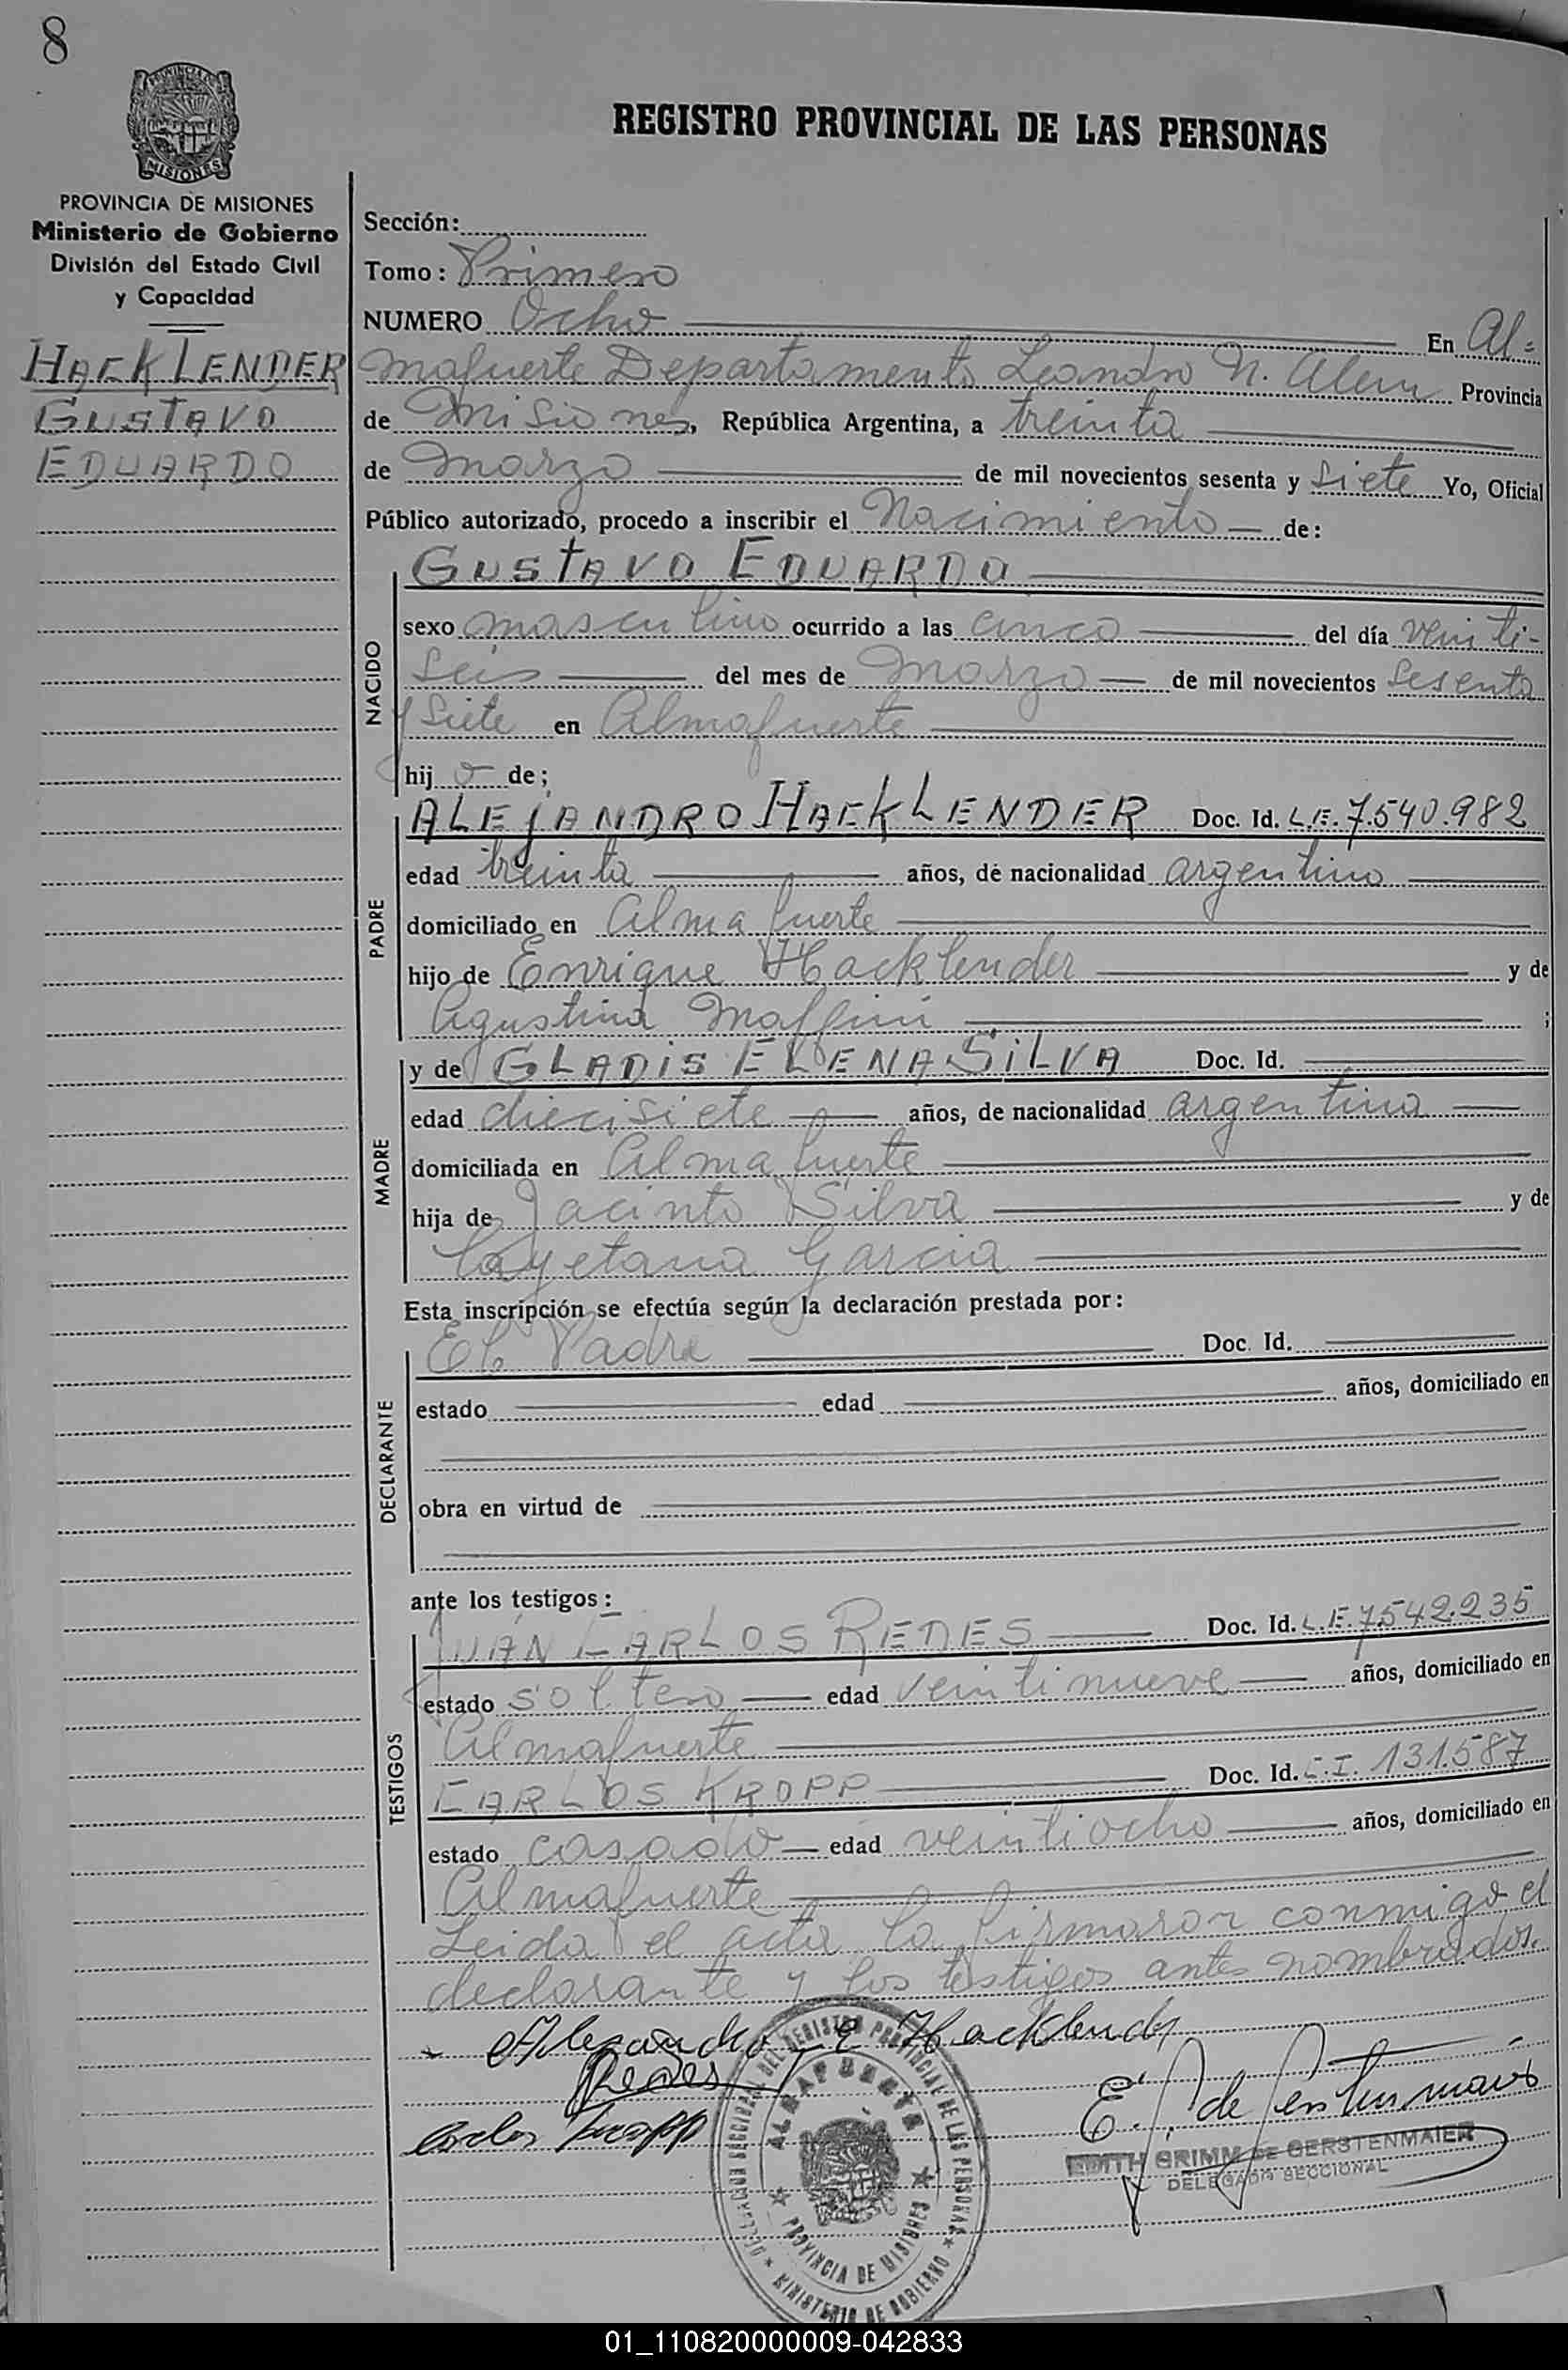 8
PROVINCIA DE
MISIONES
REGISTRO PROVINCIAL DE LAS PERSONAS
PROVINCIA DE MISIONES
Ministerio de Gobierno
División del Estado Civil
y Capacidad
HACKLENDER
GUSTAVO
EDUARDO
Sección:
Tomo: Primero
NUMERO Ocho En Al-
mafuerte Departamento Leandro N. Alem Provincia
de Misiones, República Argentina, a treinta
de marzo de mil novecientos sesenta y siete Yo, Oficial
Público autorizado, procedo a inscribir el Nacimiento de:
NACIDO
GUSTAVO EDUARDO
sexo masculino ocurrido a las cinco del día veinti-
seis del mes de marzo de mil novecientos sesenta
y siete en Almafuerte
hij o de;
PADRE
ALEJANDRO HACKLENDER Doc. Id. L.E. 7.540.982
edad treinta años, de nacionalidad argentino
domiciliado en Almafuerte
hijo de Enrique Hacklender y de
Agustina Maffini ;
MADRE
y de GLADIS ELENA SILVA Doc. Id.
edad diecisiete años, de nacionalidad argentina
domiciliada en Almafuerte
hija de Jacinto Silva y de
Cayetana Garcia
Esta inscripción se efectúa según la declaración prestada por:
DECLARANTE
El Padre Doc. Id.
estado edad años, domiciliado en
obra en virtud de
ante los testigos:
TESTIGOS
JUAN CARLOS REDES Doc. Id. L.E. 7.542.235
estado soltero edad veintinueve años, domiciliado en
Almafuerte
CARLOS KROPP Doc. Id. C.I. 131.587
estado casado edad veintiocho años, domiciliado en
Almafuerte
Leida el acta la firmaron conmigo el
declarante y los testigos antes nombrados.
Alejandro E Hacklender
Redes
Carlos Kropp
DELEGACION SECCIONAL DEL REGISTRO PROVINCIAL DE LAS PERSONAS
ALMAFUERTE
PROVINCIA DE MISIONES
MINISTERIO DE GOBIERNO
E. G. de Gerstenmaier
EDITH GRIMM DE GERSTENMAIER
DELEGADO SECCIONAL
01_110820000009-042833